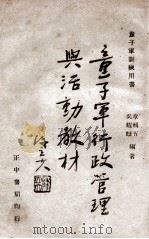 童子軍訓練用書
章輯五
吳耀麟
編著
童子軍行政管理
與活動教材
正中書局印行